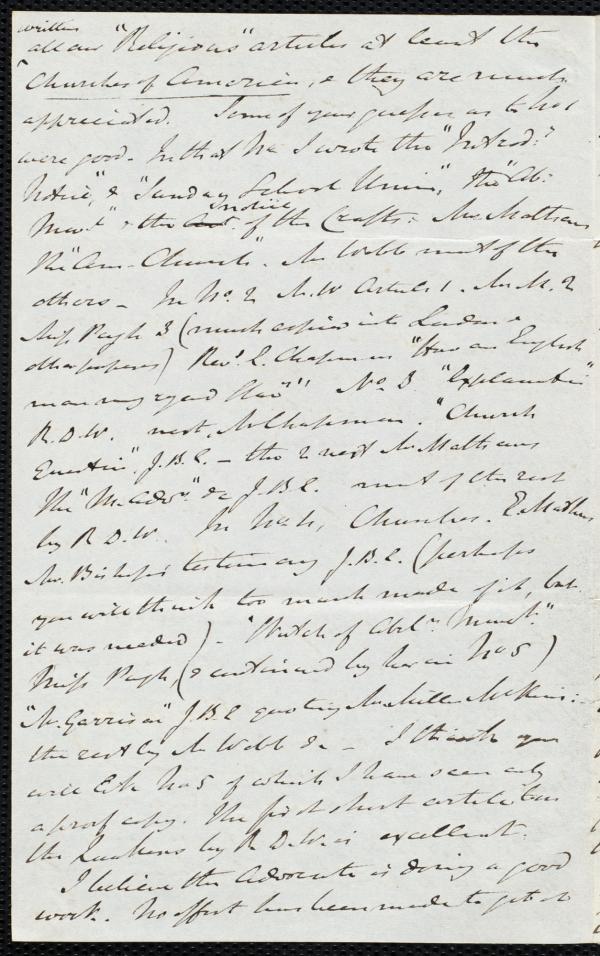 written
all our "Religious" articles at least the
"Churches of America", & they are much
appreciated. Some of your guesses as to No 1
were good. In that No I wrote the "Introd:
Notice", & "Sunday School Union", the "Ab:
Mov't" & the Notice of the Crafts: Mr. Mathews
The "Am- Church". Mr Webb most of the
others - In No. 2 Mr. W Article 1. Mr. M. 2
Miss Pugh 3 (much copied into London &
other papers) Revd. E. Chapman "How an English
man may regard Slav" No 3 "Explanation"
R.D.W. next, M Chapman. "Church
Question", J.B.E. - the 2 next Mr Mathews
The "M. Adv." &c J.B.E. most of the rest
by R.D.W. In No 4, Churches. E. Mathews
Mr. Bishop's testimony J.B.E. (perhaps
you will think too much made of it, but
it was needed) - "Sketch of Abln. Movt."
Miss Pugh, (& continued by her in No 5)
"Mr. Garrison" J.B.E quoting Mr Miller McKim:
the rest by Mr Webb &c - I think you
will like No 5 of which I have seen only
a proof copy. The first short article on
the Quakers by R.D.W. is excellent.
I believe the Advocate is doing a good
work. No effort has been made to get it